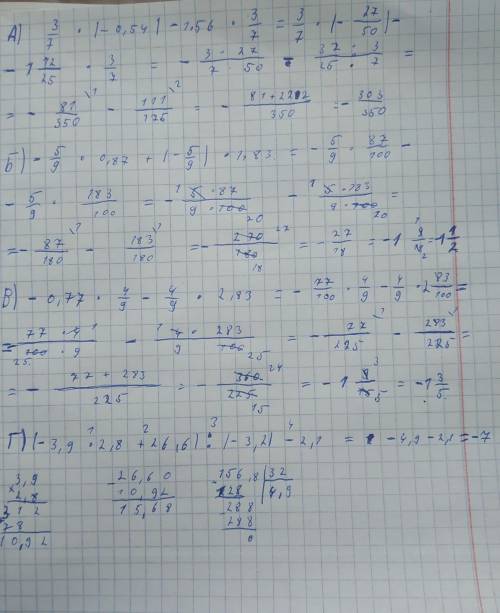 А) 3/7 · (-0,54) - 1,56 · 3/7 = 3/7 · (-27/50) -
- 1 12/25 · 3/7 = - 3·27/7·50 - 37·3/25·7 =
= - 81/350 - 111/175 = - 81+222/350 = - 303/350
Б) - 5/9 · 0,87 + (-5/9) · 1,83 = - 5/9 · 87/100 -
- 5/9 · 183/100 = - 5·87/9·100 - 5·183/9·100 =
= - 87/180 - 183/180 = - 270/180 = - 27/18 = -1 9/18 = -1 1/2
В) - 0,77 · 4/9 - 4/9 · 2,83 = - 77/100 · 4/9 - 4/9 · 2 83/100 =
= 77·4/100·9 - 4·283/9·100 = - 77/225 - 283/225 =
= - 77+283/225 = - 360/225 = -1 9/15 = -1 3/5
Г) (-3,9 · 2,8 + 26,6) : (-3,2) - 2,1 = -4,9 - 2,1 = -7
3,9
× 2,8
312
78
10,92
26,60
- 10,92
15,68
156,8 | 32
128 | 4,9
288
288
0